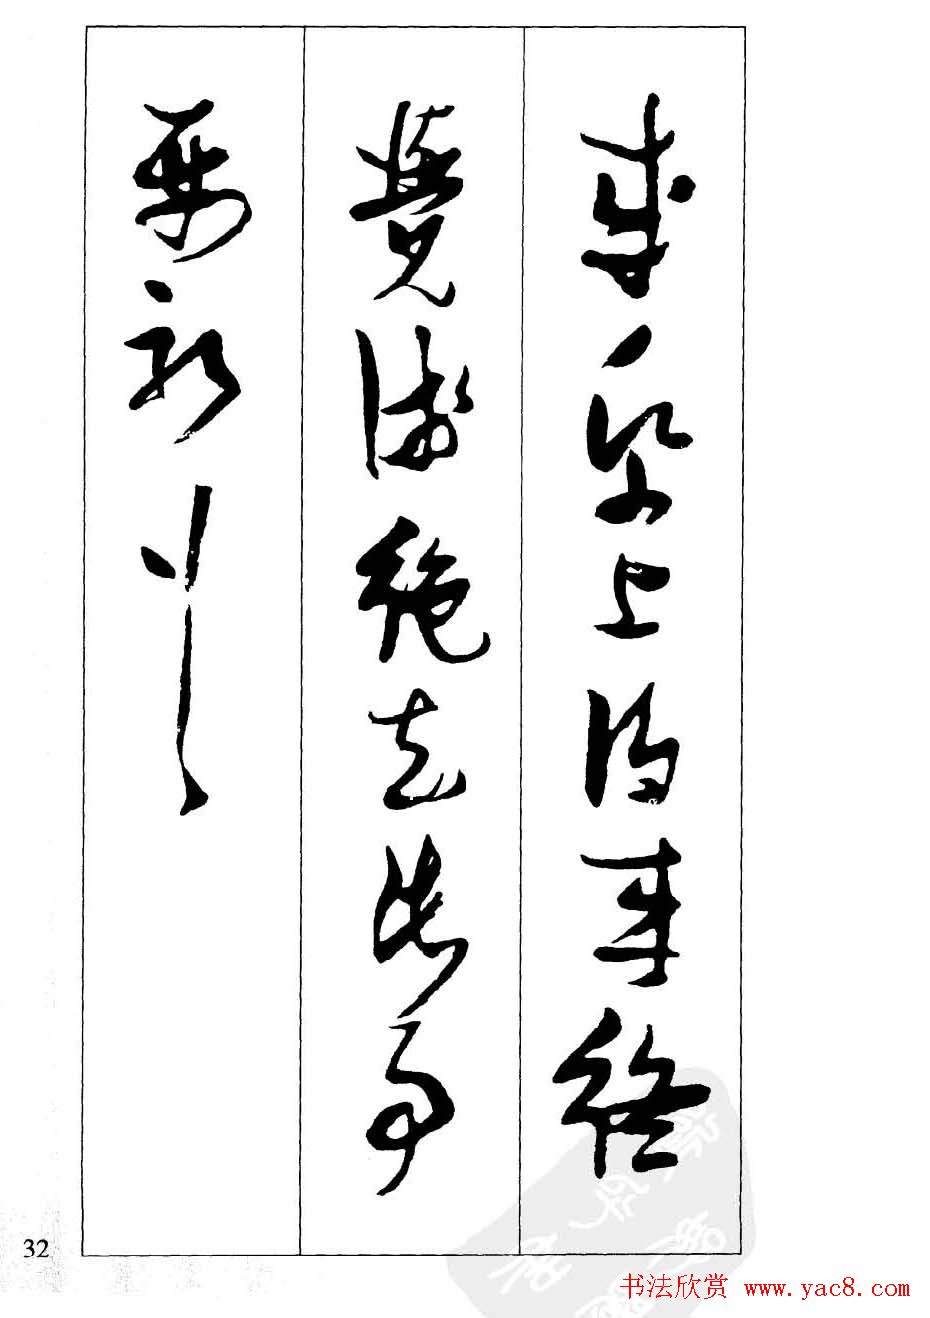 成帋上得来終
覺淺絕知此事
要躬行
32
书法欣赏 www.yac8.com